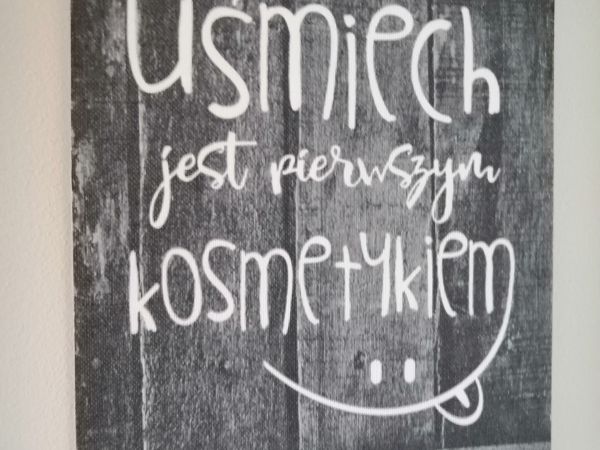 Uśmiech
jest pierwszym
kosmetykiem